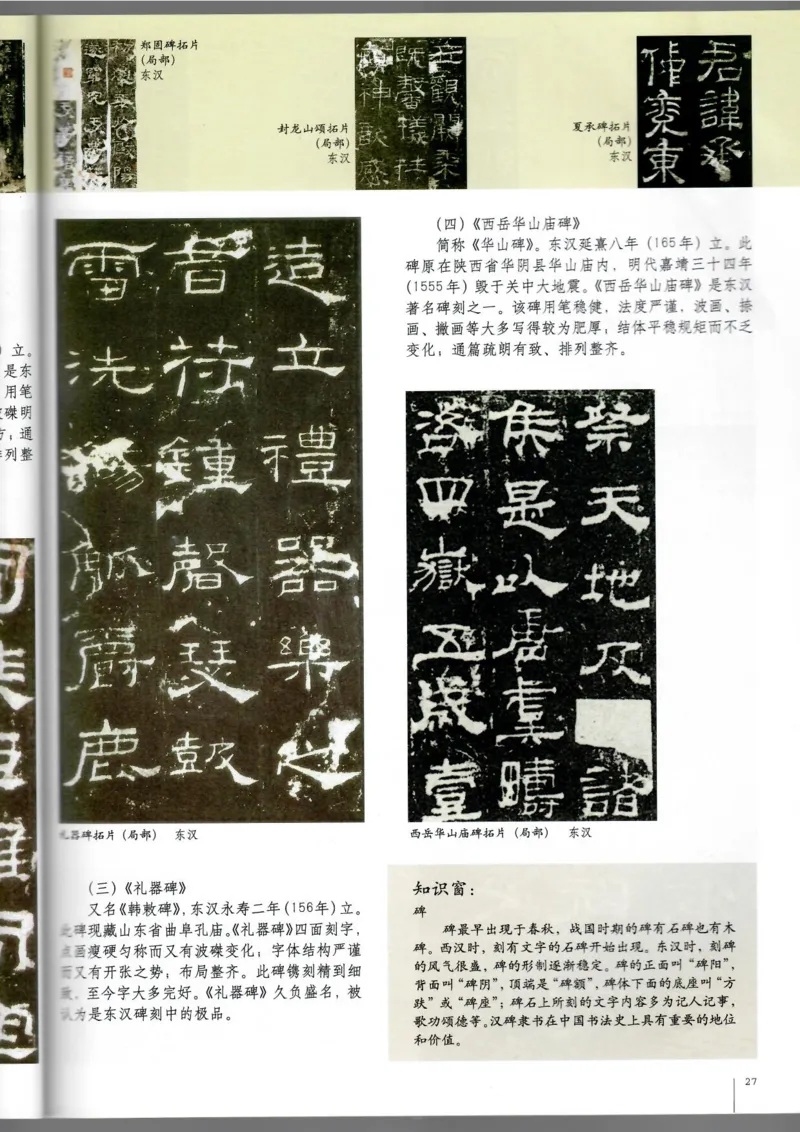 郑固碑拓片
(局部)
东汉
封龙山颂拓片
(局部)
东汉
夏承碑拓片
(局部)
东汉
君諱承
仲兖東
造立禮器樂之
音苻鍾磬瑟鼓
雷洗觴觚爵鹿
礼器碑拓片(局部) 东汉
(三)《礼器碑》
又名《韩敕碑》,东汉永寿二年(156年)立。
此碑现藏山东省曲阜孔庙。《礼器碑》四面刻字,
点画瘦硬匀称而又有波磔变化;字体结构严谨
而又有开张之势;布局整齐。此碑镌刻精到细
致,至今字大多完好。《礼器碑》久负盛名,被
认为是东汉碑刻中的极品。
(四)《西岳华山庙碑》
简称《华山碑》。东汉延熹八年(165年)立。此
碑原在陕西省华阴县华山庙内,明代嘉靖三十四年
(1555年)毁于关中大地震。《西岳华山庙碑》是东汉
著名碑刻之一。该碑用笔稳健,法度严谨,波画、捺
画、撇画等大多写得较为肥厚;结体平稳规矩而不乏
变化;通篇疏朗有致、排列整齐。
祭天地及諸
集是以唐虞疇
咨四嶽五歲壹
西岳华山庙碑拓片(局部) 东汉
知识窗:
碑
碑最早出现于春秋,战国时期的碑有石碑也有木
碑。西汉时,刻有文字的石碑开始出现。东汉时,刻碑
的风气很盛,碑的形制逐渐稳定。碑的正面叫“碑阳”,
背面叫“碑阴”,顶端是“碑额”,碑体下面的底座叫“方
趺”或“碑座”;碑石上所刻的文字内容多为记人记事,
歌功颂德等。汉碑隶书在中国书法史上具有重要的地位
和价值。
27
立。
是东
用笔
磔明
方;通
列整